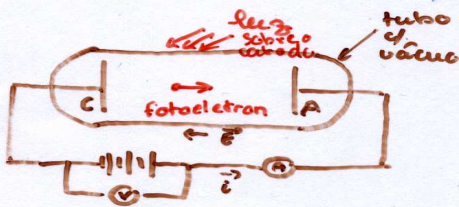 luz
sobre o
catodo
tubo
c/
vácuo
C
fotoeletron
A
E
i
V
A